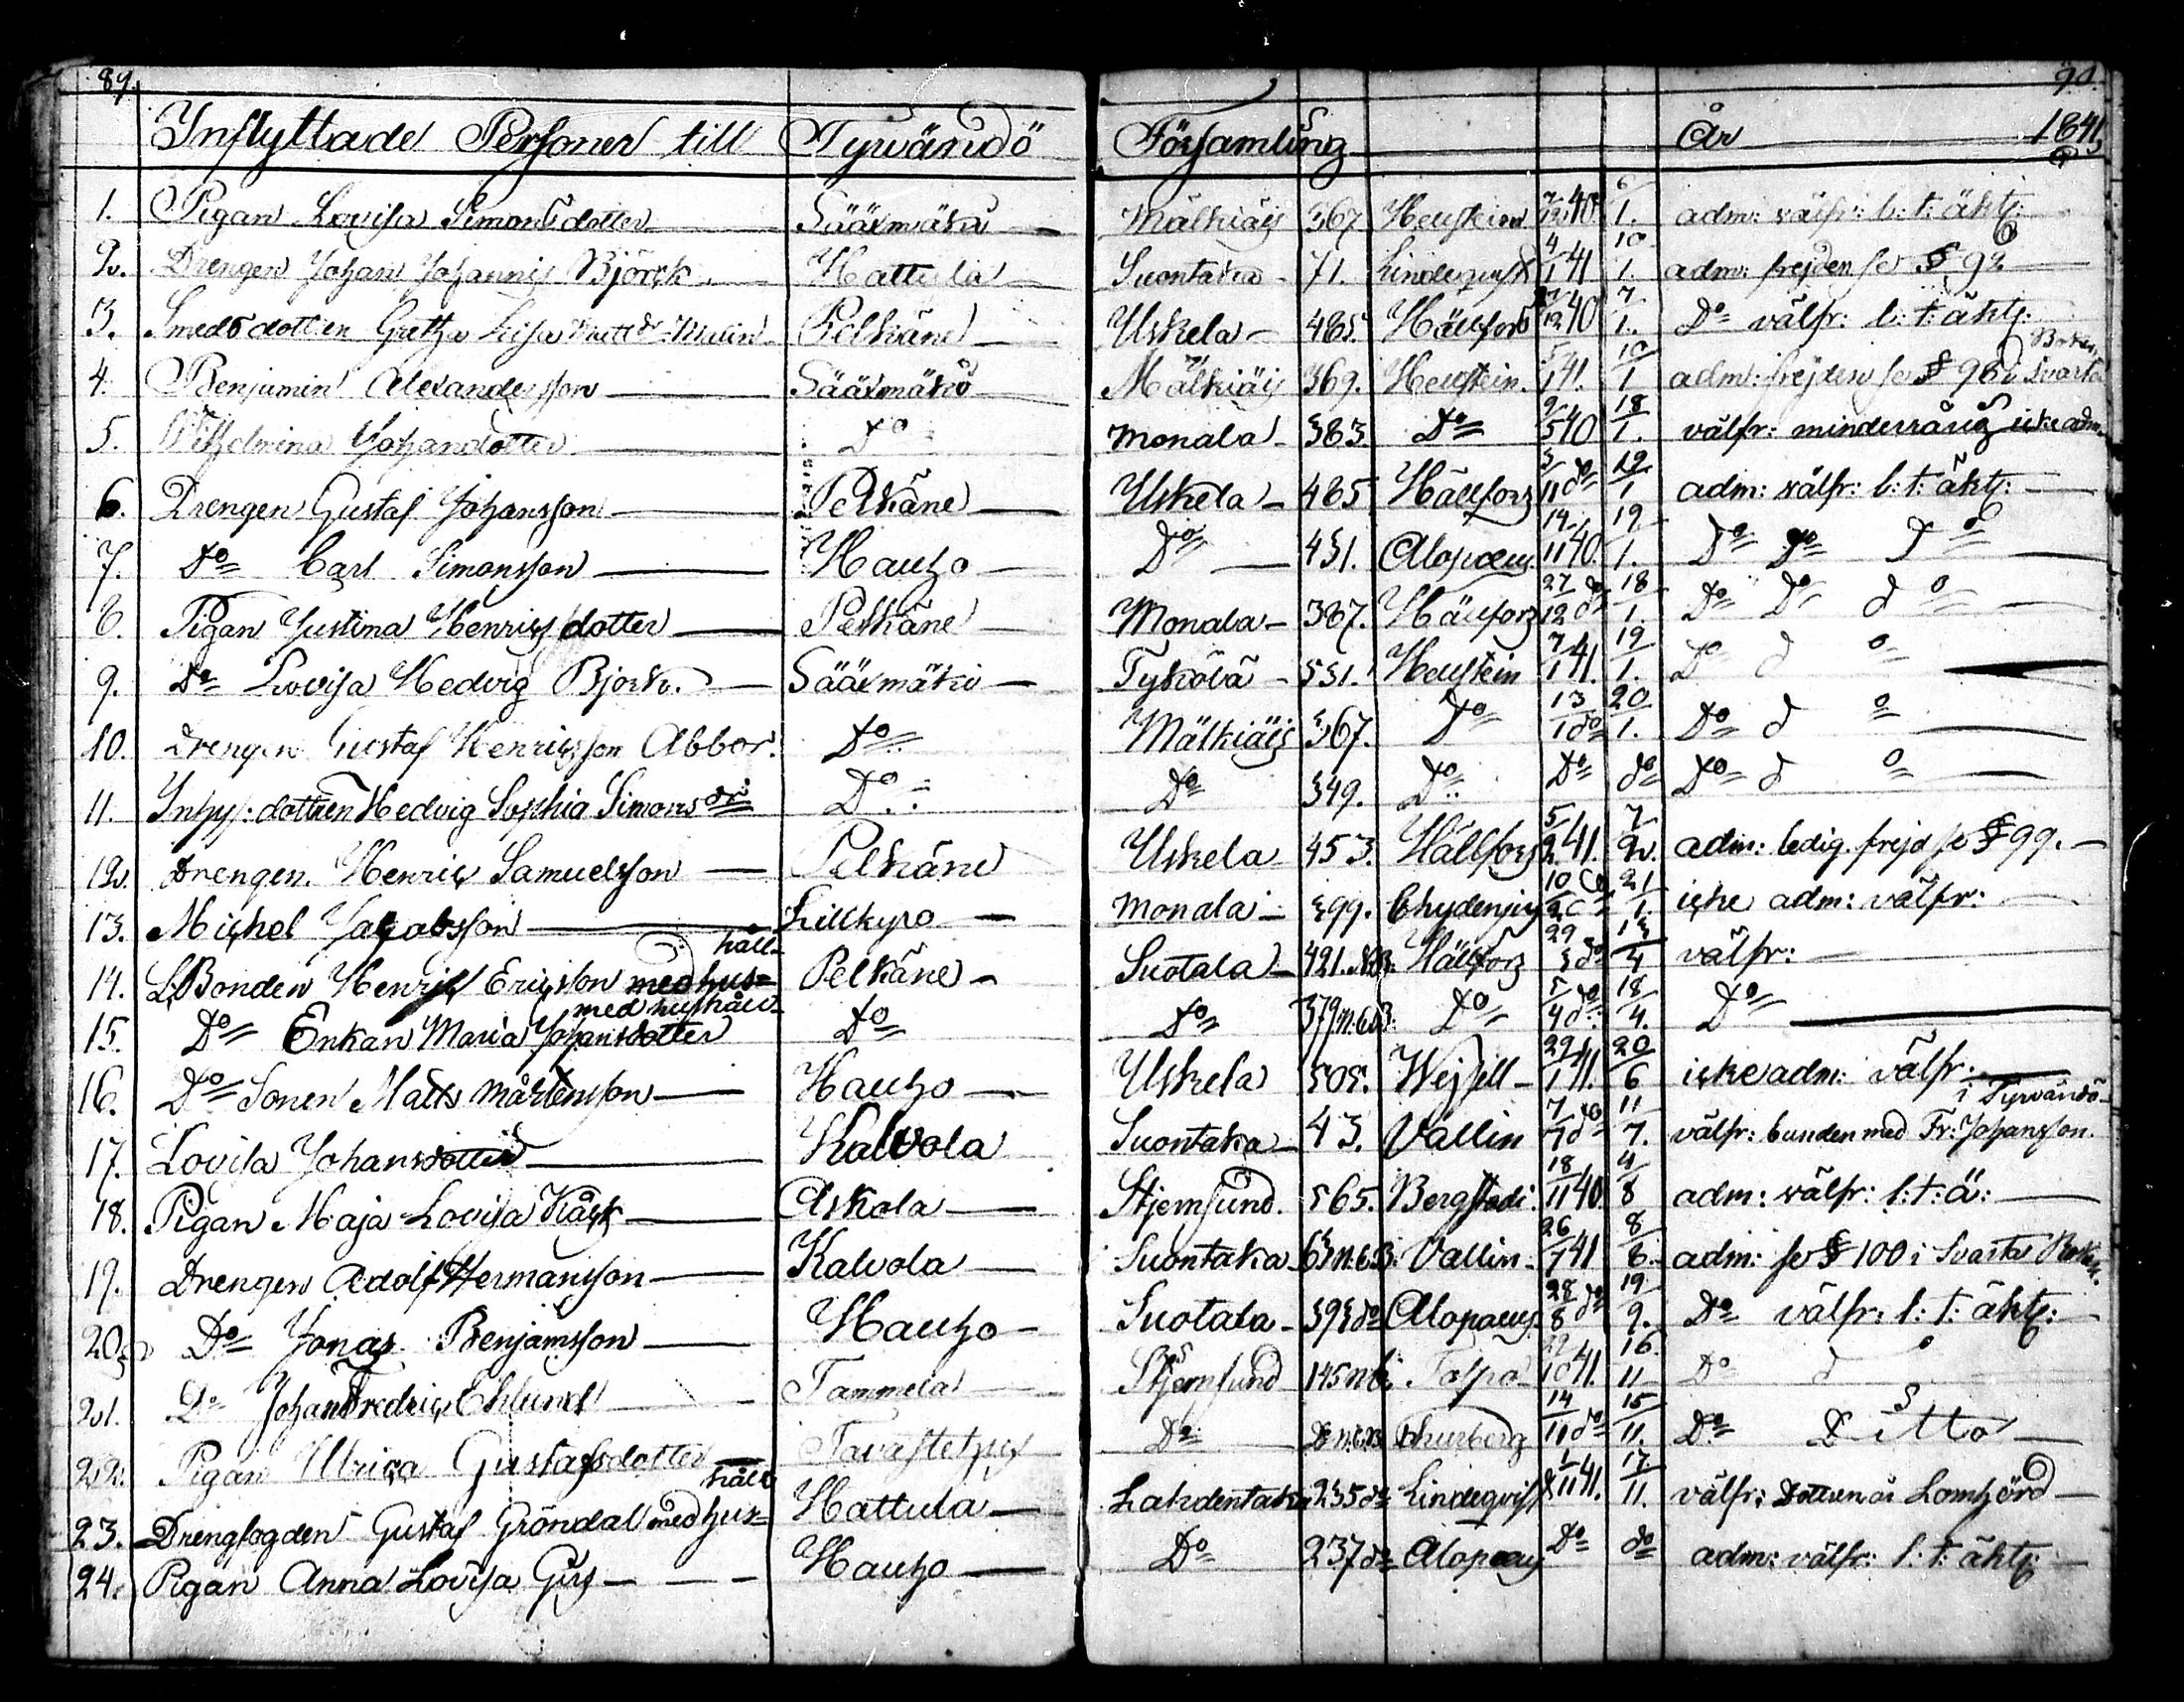 89. 90.
Inflyttade Personer till Tyrvändö Församling År 1841,
1. Pigan Lovisa Simonsdotter Sääxmäki Mälkiäis 567 Heustein 7/12 40. 6/1. adm: välfr: l: t: ähtg:
2. Drengen Johan Johannis Björck Hattula Suontaka 71. Lindeqvist 4/1 41 10/1. adm: frejden se § 92
3. Smedsdottren Gretha Lisa Matts dr Malin Pelkäne Uskela 485. Hällfors 7/12 40 7/1. Do välfr: l: t: ähtg:
Boken
4. Benjamin Alexandersson Sääxmäki Mälkiäis 369. Heustein. 5/1 41. 10/1 adm: frejden se § 96 i Svarta
5. Wilhelmina Johansdotter Do Monala 383 Do 9/5 40 18/1. välfr: minderåirig icke adm.
6. Drengen Gustaf Johansson Pelkäne Uskela 485 Hällfors 3/11 do 19/1 adm: välfr: l: t: ähtg:
7. Do Carl Simonsson Hauho Do 431. Alopæus 14/11 40. 19/1. Do Do do
8. Pigan Justina Henricsdotter Pelkäne Monala 387. Hällfors 27/12 do 18/1. Do Do do
9. Do Lovisa Hedvig Björk. Sääxmäki Tykölä 531. Heustein 7/1 41. 19/1. Do do
10. Drengen Gustaf Henricsson Abbor. Do Mälkiäis 367. Do 13/1 do 20/1. Do do
11. Inhys: dottren Hedvig Sophia Simons dr Do Do 349. Do Do do Do do
12. Drengen Henric Samuelsson Pelkäne Uskela 453. Hällfors 5/2 41. 7/2. adm: ledig. frejd se § 99.
13. Michel Jacobsson Lillkyro Monala 399. Chydenius 10/2 21/1. icke adm: välfr:
håll
14. L Bonden Henric Ericsson med hus= Pelkäne Suotala 421. Hällfors 29/3 do 13/4 välfr:
med hushåll
15. Do Enkan Maria Johansdotter Do Do 379 m. 6 B. Do 5/4 do. 18/4. Do
16. Do Sonen Matts Mårtensson Hauho Uskela 505. Wejsell 29/1 41. 20/6 icke adm: välfr:
i Tyrvändö
17. Lovisa Johansdotter Kalvola Suontaka 43. Vallin 7/7 do 11/7. välfr: bunden med Fr: Johansson.
18. Pigan Maja Lovisa Kåsk Askola Stjernsund. 565. Bergstadi. 18/11 40. 4/8 adm: välfr: l: t: ä:
19. Drengen Adolf Hermansson Kalvola Suontaka 63 m. 6 B. Vallin 26/7 41 8/8. adm: se § 100 i Svarta Boken.
20. Do Jonas Benjamsson Hauho Suotala 393 do Alopæus 28/8 do 19/9. Do välfr: l: t: ähtg:
21. Do Johan Fredric Eklund Tammela Stjernsund 145 m 6 Tolpo 22/10 41. 16/11 Do do
22. Pigan Ulrica Gustafsdotter Tavastehus Do Do m. 6 B Thurberg 14/11 do 15/11. Do Ditto
håll
23. Drengfogden Gustaf Gröndal med hus= Hattula Lahdentaka 235 do Lindeqvist 1/11 41. 17/11. välfr: Dottren är Lomhörd
24. Pigan Anna Lovisa Gus Hauho Do 237 do Alopæus Do do adm: välfr: l: t: ähtg: